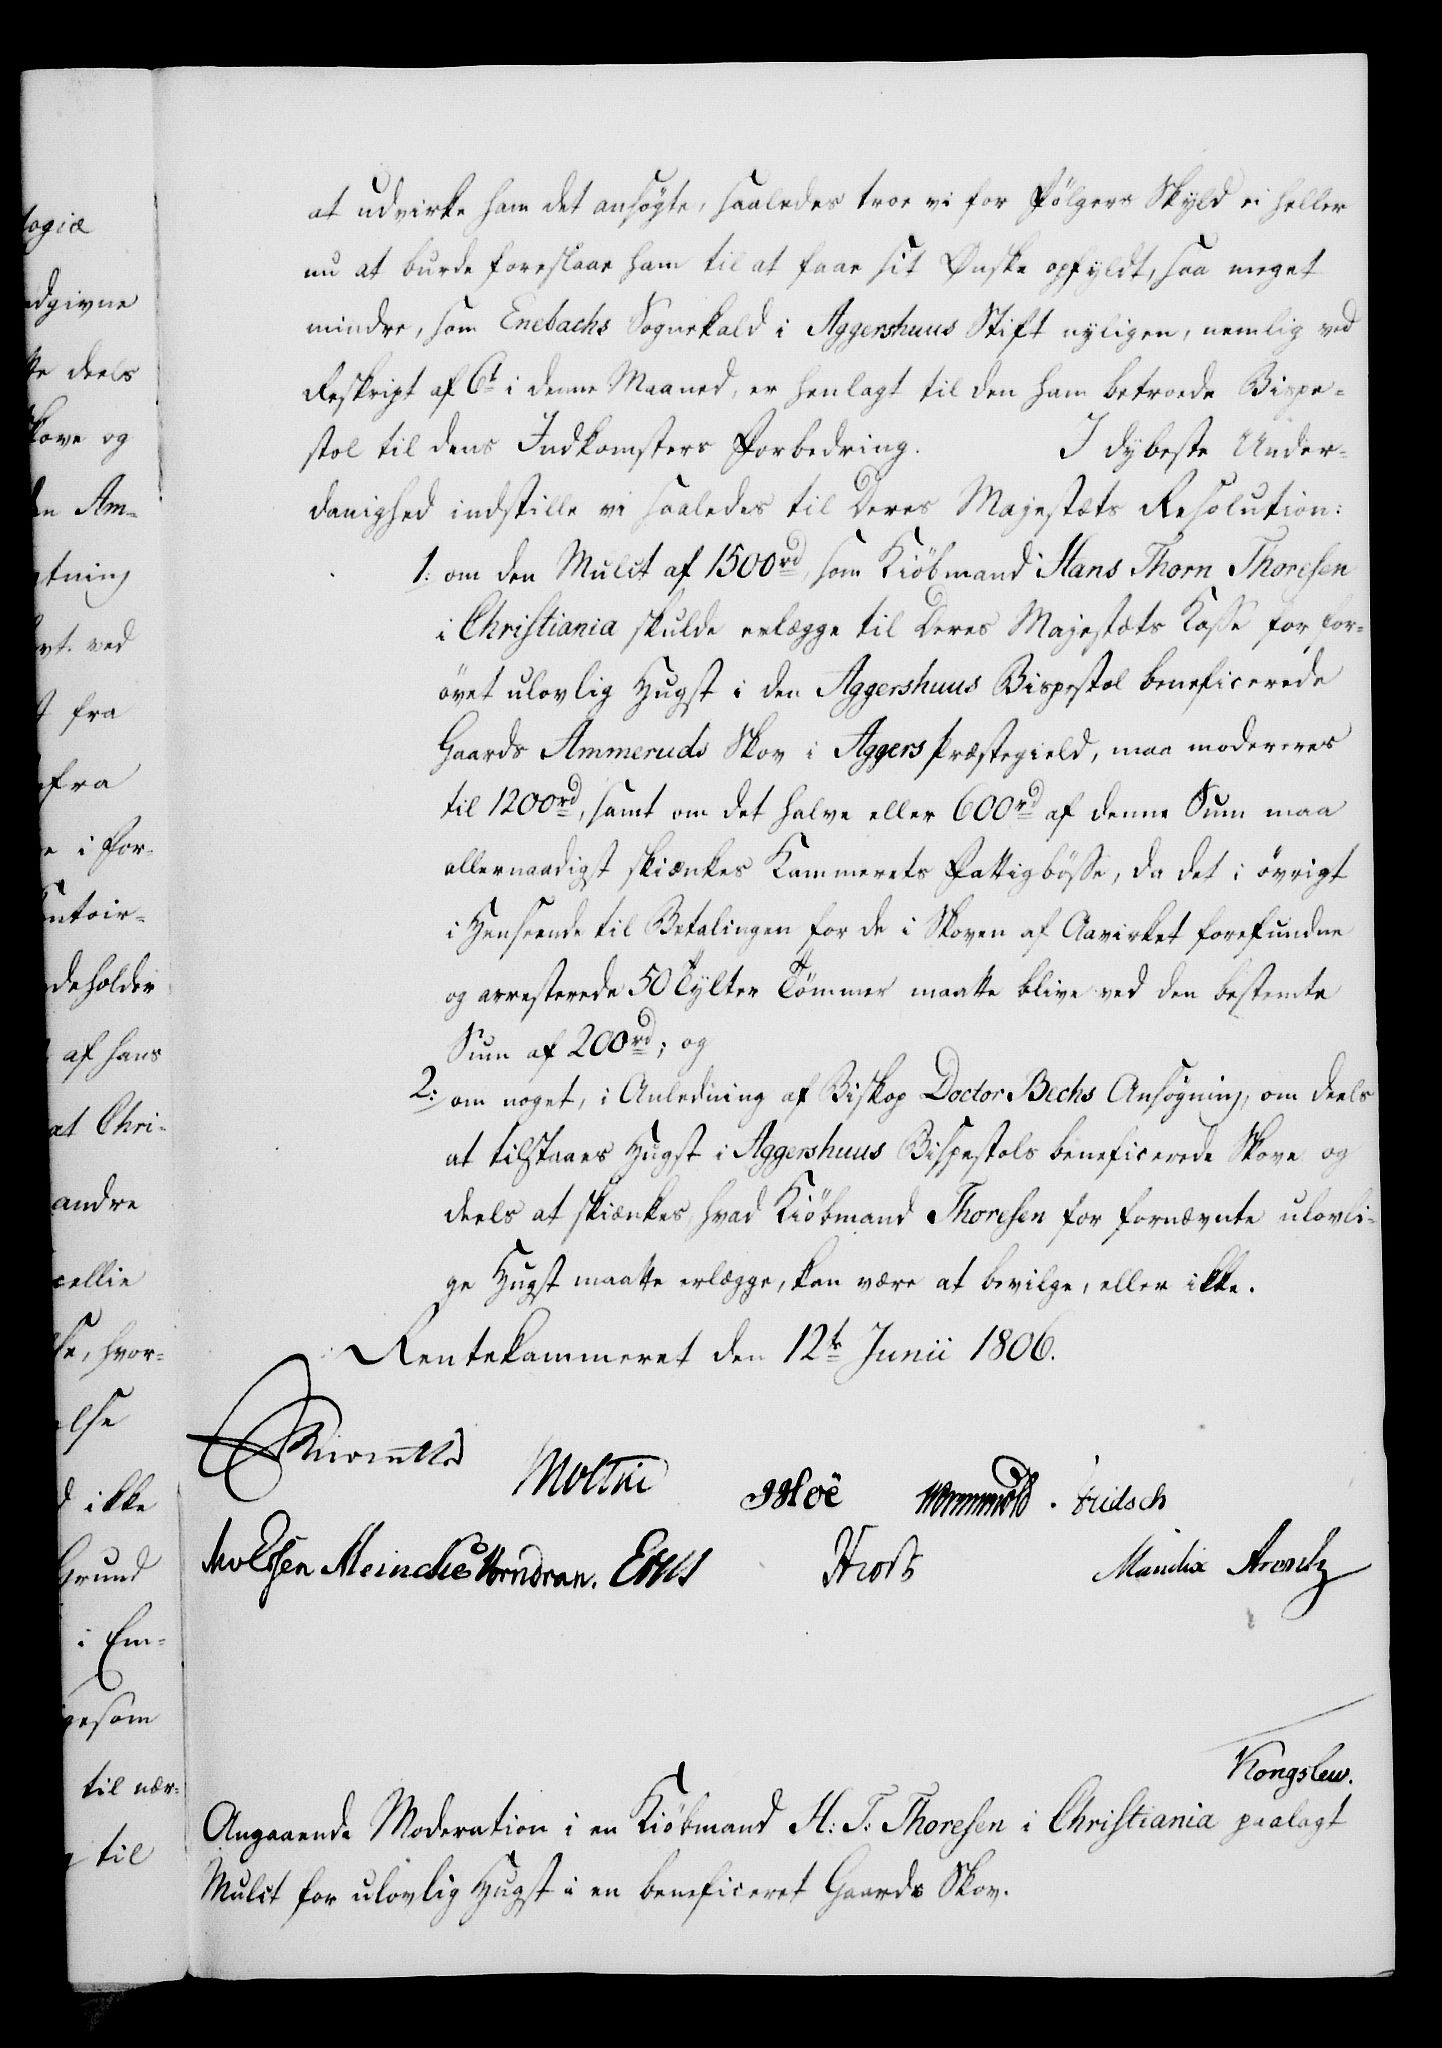 at udvirke ham det ansögte, saaledes troe vi for Fölgers Skyld ei heller
nu at burde foreslaae ham til at faae sit Ønske opfyldt, saa meget
mindre, som Enebachs Sognekald i Aggershuus Stift nyligen, nemlig ved
Reskript af 6t i denne Maaned, er henlagt til den ham betroede Bispe-
stol til dens Indkomsters Forbedring. I dybeste Under-
danighed indstille vi saaledes til Deres Majestæts Resolution:
1: om den Mulct af 1500rd, som Kiöbmand Hans Thorn Thoresen
i Christiania skulde erlægge til Deres Majestæts Kasse for for-
övet ulovlig Hugst i den Aggershuus Bispestol beneficerede
Gaards Ammeruds Skov i Aggers Præstegield, maa modereres
til 1200rd, samt om det halve eller 600rd af denne Sum maa
allernaadigst skiænkes Kammerets Fattigbösse, da det i övrigt
i Henseende til Betalingen for de i Skoven af Aavirket forefundne
og arresterede 50 Tylter Tömmer maatte blive ved den bestemte
Sum af 200rd; og
2: om noget, i Anledning af Biskop Doctor Bechs Ansögning, om deels
at tilstaaes Hugst i Aggershuus Bispestols beneficerede Skove og
deels at skiænkes, hvad Kiöbmand Thoresen for fornævnte ulovli-
ge Hugst maatte erlægge, kan være at bevilge, eller ikke.
Rentekammeret den 12te Junii 1806.
Reventlow Moltke Wormskiold. Fridsch
Meincke Korndran. Hiort Mandix Arentz
Kongslew.
Angaaende Moderation i en Kiöbmand H: T: Thoresen i Christiania paalagt
Mulct for ulovlig Hugst i en beneficeret Gaards Skov.